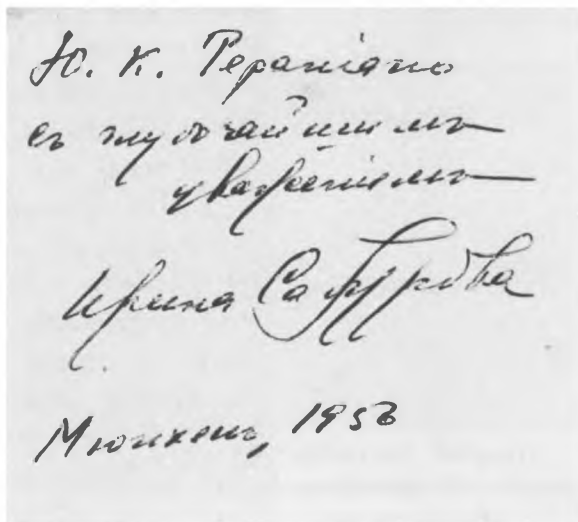 Ю. К. Терапiано
съ глубочайшимъ
уваженiемъ
Ирина Сабурова
Мюнхенъ, 1956